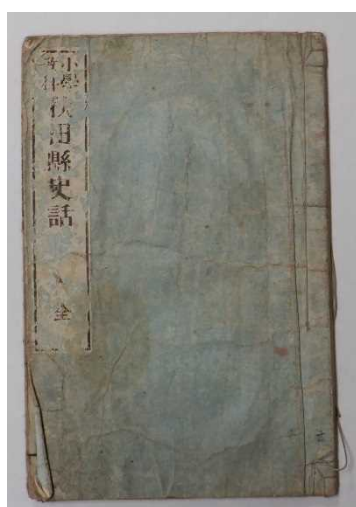 小學
秋田縣史話
全